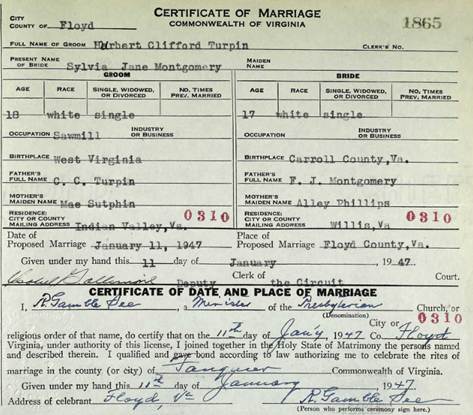 CERTIFICATE OF MARRIAGE
COMMONWEALTH OF VIRGINIA
1865
CITY
COUNTY OF Floyd
FULL NAME OF GROOM Herbert Clifford Turpin CLERK'S NO.
PRESENT NAME OF BRIDE Sylvia Jane Montgomery MAIDEN NAME
GROOM BRIDE
AGE RACE SINGLE, WIDOWED, OR DIVORCED NO. TIMES PREV. MARRIED AGE RACE SINGLE, WIDOWED, OR DIVORCED NO. TIMES PREV. MARRIED
18 white single 17 white single
OCCUPATION Sawmill INDUSTRY OR BUSINESS OCCUPATION INDUSTRY OR BUSINESS
BIRTHPLACE West Virginia BIRTHPLACE Carroll County, Va.
FATHER'S FULL NAME C. C. Turpin FATHER'S FULL NAME F. J. Montgomery
MOTHER'S MAIDEN NAME Mae Sutphin MOTHER'S MAIDEN NAME Alley Phillips
RESIDENCE: CITY OR COUNTY 0310 RESIDENCE: CITY OR COUNTY 0310
MAILING ADDRESS Indian Valley, Va. MAILING ADDRESS Willis, Va.
Date of Proposed Marriage January 11, 1947 Place of Proposed Marriage Floyd County, Va.
Given under my hand this 11 day of January , 1947.
Deputy Clerk of the Circuit Court.
CERTIFICATE OF DATE AND PLACE OF MARRIAGE
I, R Gamble See a Minister of the Presbyterian Church, or
(Denomination) 0310
religious order of that name, do certify that on the 11th day of Jan'y 1947 City or Co Floyd
Virginia, under authority of this license, I joined together in the Holy State of Matrimony the persons named
and described therein. I qualified and gave bond according to law authorizing me to celebrate the rites of
marriage in the county (or city) of Fauquier Commonwealth of Virginia.
Given under my hand this 11th day of January 1947.
Address of celebrant Floyd, Va R Gamble See
(Person who performs ceremony sign here.)